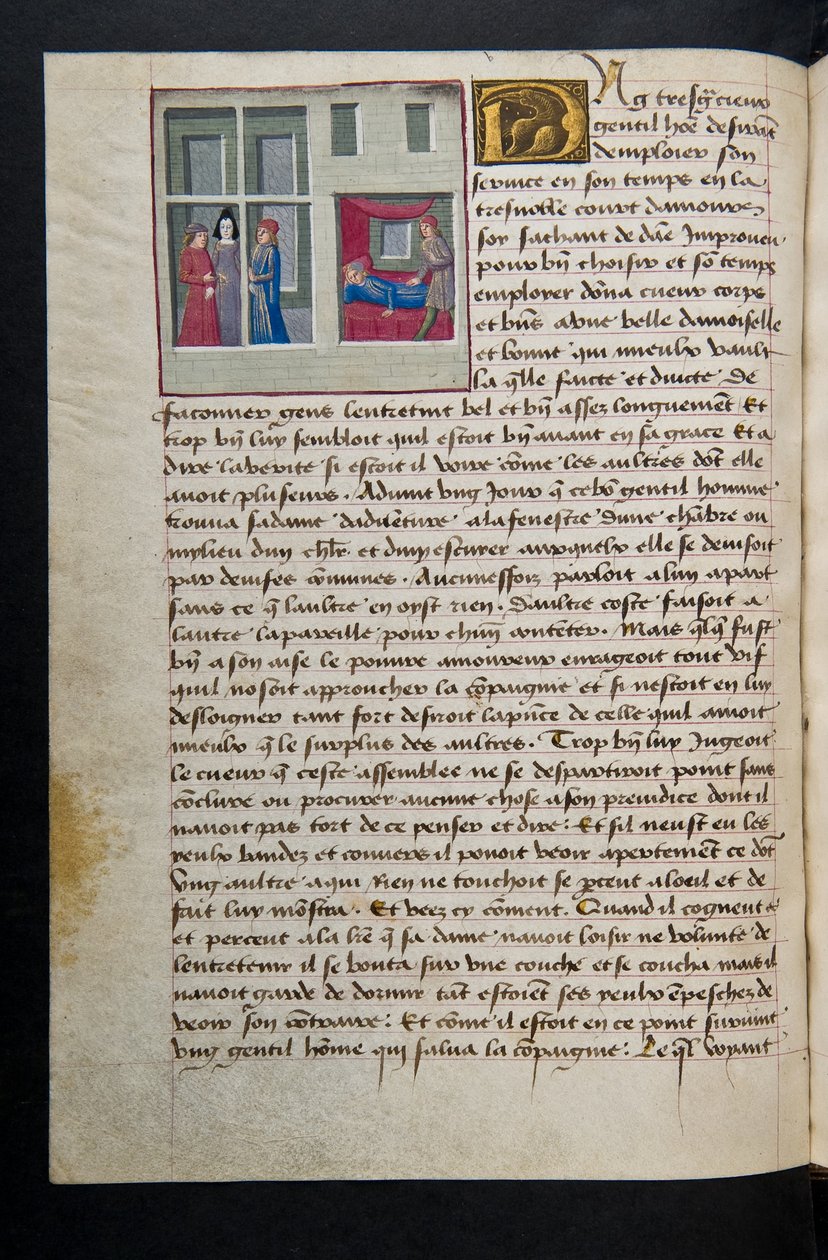 Ung tresgr̃cieux
gentil hõe desirãt
demploier son
seruice en son temps en la
tresnoble court damours
soy sachant de dãe Improueu
pour bñ choisir et sõ temps
employer dõna cueur corps
et bñs a vne belle damoiselle
et bonne qui mieulx vault
la q̃lle faicte et duicte de
faconner gens lentretint bel et bñ assez longuemẽt Et
trop bñ luy sembloit quil estoit bñ auant en sa grace Et a
dire la verite si estoit il voire cõme les aultres dõt elle
auoit pluseurs. Aduint vng Jour q̃ ce bõ gentil homme
trouua sa dame dadueture a la fenestre dune chãbre ou
mylieu dun chl̃r et dun escuyer ausquelx elle se deuisoit
par deuises cõmunes. Aucunesfois parloit a lun apart
sans ce q̃ laultre en oyst rien. Daultre coste faisoit a
lautre la pareille pour chũn contẽter. Mais q̃lq̃ fust
bñ a son aise le pouure amoureux enrageoit tout vif
quil nosoit approucher la cõpaignie et si nestoit en luy
desloigner tant fort desiroit la pñce de celle quil amoit
mieulx q̃ le surplus des aultres. Trop bñ luy Jugeoit
le cueur q̃ ceste assemblee ne se despartiroit point sans
cõclure ou procurer aucune chose a son preiudice dont il
nauoit pas tort de ce penser et dire: Et sil neust eu les
yeulx bandez et couuers il pouoit veoir apertemẽt ce dõt
vng aultre a qui Rien ne touchoit se ꝑceut a loeil et de
fait luy mõstra. Et veez cy cõment. Quand il cogneut
et perceut a la lr̃e q̃ sa dame nauoit loisir ne volunte de
lentretenir il se bouta sur vne couche et se coucha mais il
nauoit garde de dormir tãt estoiẽt ses yeulx ẽpeschez de
veoir son cõtraire: Et cõme il estoit en ce point suruint
vng gentil hõme qui salua la cõpaignie: Le q̃l voyant